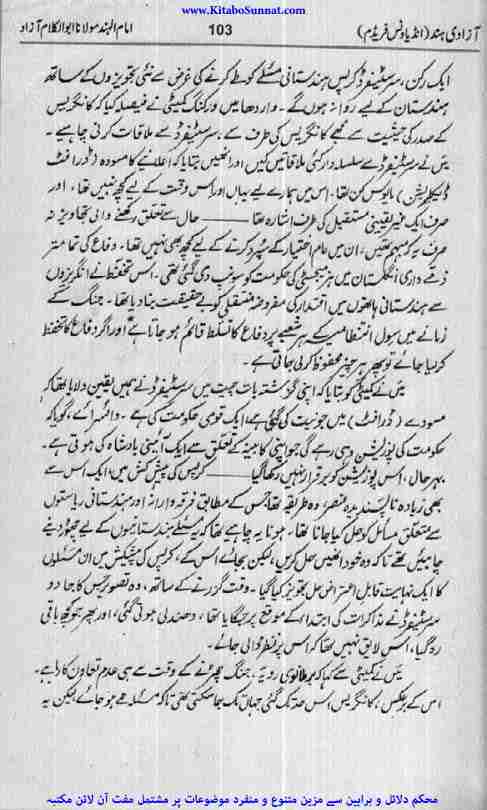 www.KitaboSunnat.com
آزادی ہند (انڈیا ونس فریڈم)
103
امام الہند مولانا ابوالکلام آزاد
ایک رکن، سر سٹیفرڈ کرپس ہندستانی مسئلے کو طے کرنے کی غرض سے نئی تجویزوں کے ساتھ
ہندستان کے لیے روانہ ہوں گے۔ واردھا میں ورکنگ کمیٹی نے فیصلہ کیا کہ کانگریس
کے صدر کی حیثیت سے مجھے کانگریس کی طرف سے، سر سٹیفرڈ سے ملاقات کرنی چاہیے۔
میں نے سر سٹیفرڈ سے سلسلہ وار کئی ملاقاتیں کیں اور انھیں بتایا کہ اعلانیے کا مسودہ (ڈرافٹ
ڈیکلیریشن) مایوس کن تھا۔ اس میں ہمارے لیے یہاں اور اس وقت کے لیے کچھ نہیں تھا، اور
صرف ایک غیر یقینی مستقبل کی طرف اشارہ تھا ——— حال سے تعلق رکھنے والی تجاویز نہ
صرف یہ کہ مبہم تھیں، ان میں عام اختیار کے سپرد کرنے کے لیے کچھ بھی نہیں تھا۔ دفاع کی تمام تر
ذمے داری انگلستان میں ہز میجسٹی کی حکومت کو سونپ دی گئی تھی۔ اس تحفظ نے انگریزوں
سے ہندستانی ہاتھوں میں اقتدار کی مفروضہ منتقلی کو بے حقیقت بنا دیا تھا۔ جنگ کے
زمانے میں سول انتظامیہ کے ہر شعبے پر دفاع کا تسلط قائم ہو جاتا ہے اور اگر دفاع کا تحفظ
کر لیا جائے تو پھر ہر چیز محفوظ کر لی جاتی ہے۔
میں نے کمیٹی کو بتایا کہ اپنی گزشتہ بات چیت میں سر سٹیفرڈ نے ہمیں یقین دلایا تھا کہ
مسودے (ڈرافٹ) میں جو نیت کی گئی ہے، ایک قومی حکومت کی ہے۔ وائسراے، گویا کہ
حکومت کی پوزیشن وہی رہے گی جو اپنی کابینہ کے تعلق سے ایک آئینی بادشاہ کی ہوتی ہے۔
بہر حال، اس پوزیشن کو برقرار نہیں رکھا گیا ——— کرپس کی پیش کش میں ایک اس سے
بھی زیادہ ناپسندیدہ عنصر، وہ طریقہ تھا جس کے مطابق فرقہ وارانہ اور ہندستانی ریاستوں
سے متعلق مسائل کو حل کیا جانا تھا۔ ہونا یہ چاہیے تھا کہ یہ مسئلے ہندستانیوں کے لیے چھوڑ دیئے
جاتے تاکہ وہ خود انھیں حل کریں، لیکن بجائے اس کے، کرپس کی پیشکش میں ان مسئلوں
کا ایک نہایت قابل اعتراض حل تجویز کیا گیا۔ وقت گزرنے کے ساتھ، وہ تصور جس کا جادو
سر سٹیفرڈ نے مذاکرات کی ابتدا کے موقع پر جگایا تھا، دھندلی ہوتی گئی، اور پھر جو کچھ باقی
رہ گیا، اس لایق نہیں تھا کہ اس پر نظر ڈالی جائے۔
میں نے کمیٹی سے کہا کہ برطانوی رویہ، جنگ چھڑنے کے وقت سے ہی عدم تعاون کا رہا ہے۔
اس کے برعکس، کانگریس اس حد تک گئی جہاں تک جا سکتی تھی تاکہ مسئلہ طے ہو جائے لیکن یہ
محکم دلائل و براہین سے مزین متنوع و منفرد موضوعات پر مشتمل مفت آن لائن مکتبہ